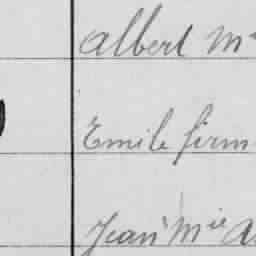 Albert M
Emile firm
Jean Mie A